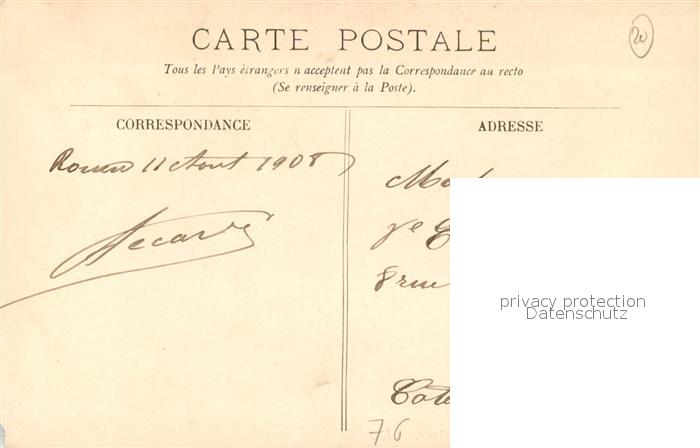 20
CARTE POSTALE
Tous les Pays étrangers n acceptent pas la Correspondance au recto
(Se renseigner à la Poste).
CORRESPONDANCE
ADRESSE
Rouen 11 Aout 1908
8 rue
privacy protection
Datenschutz
76